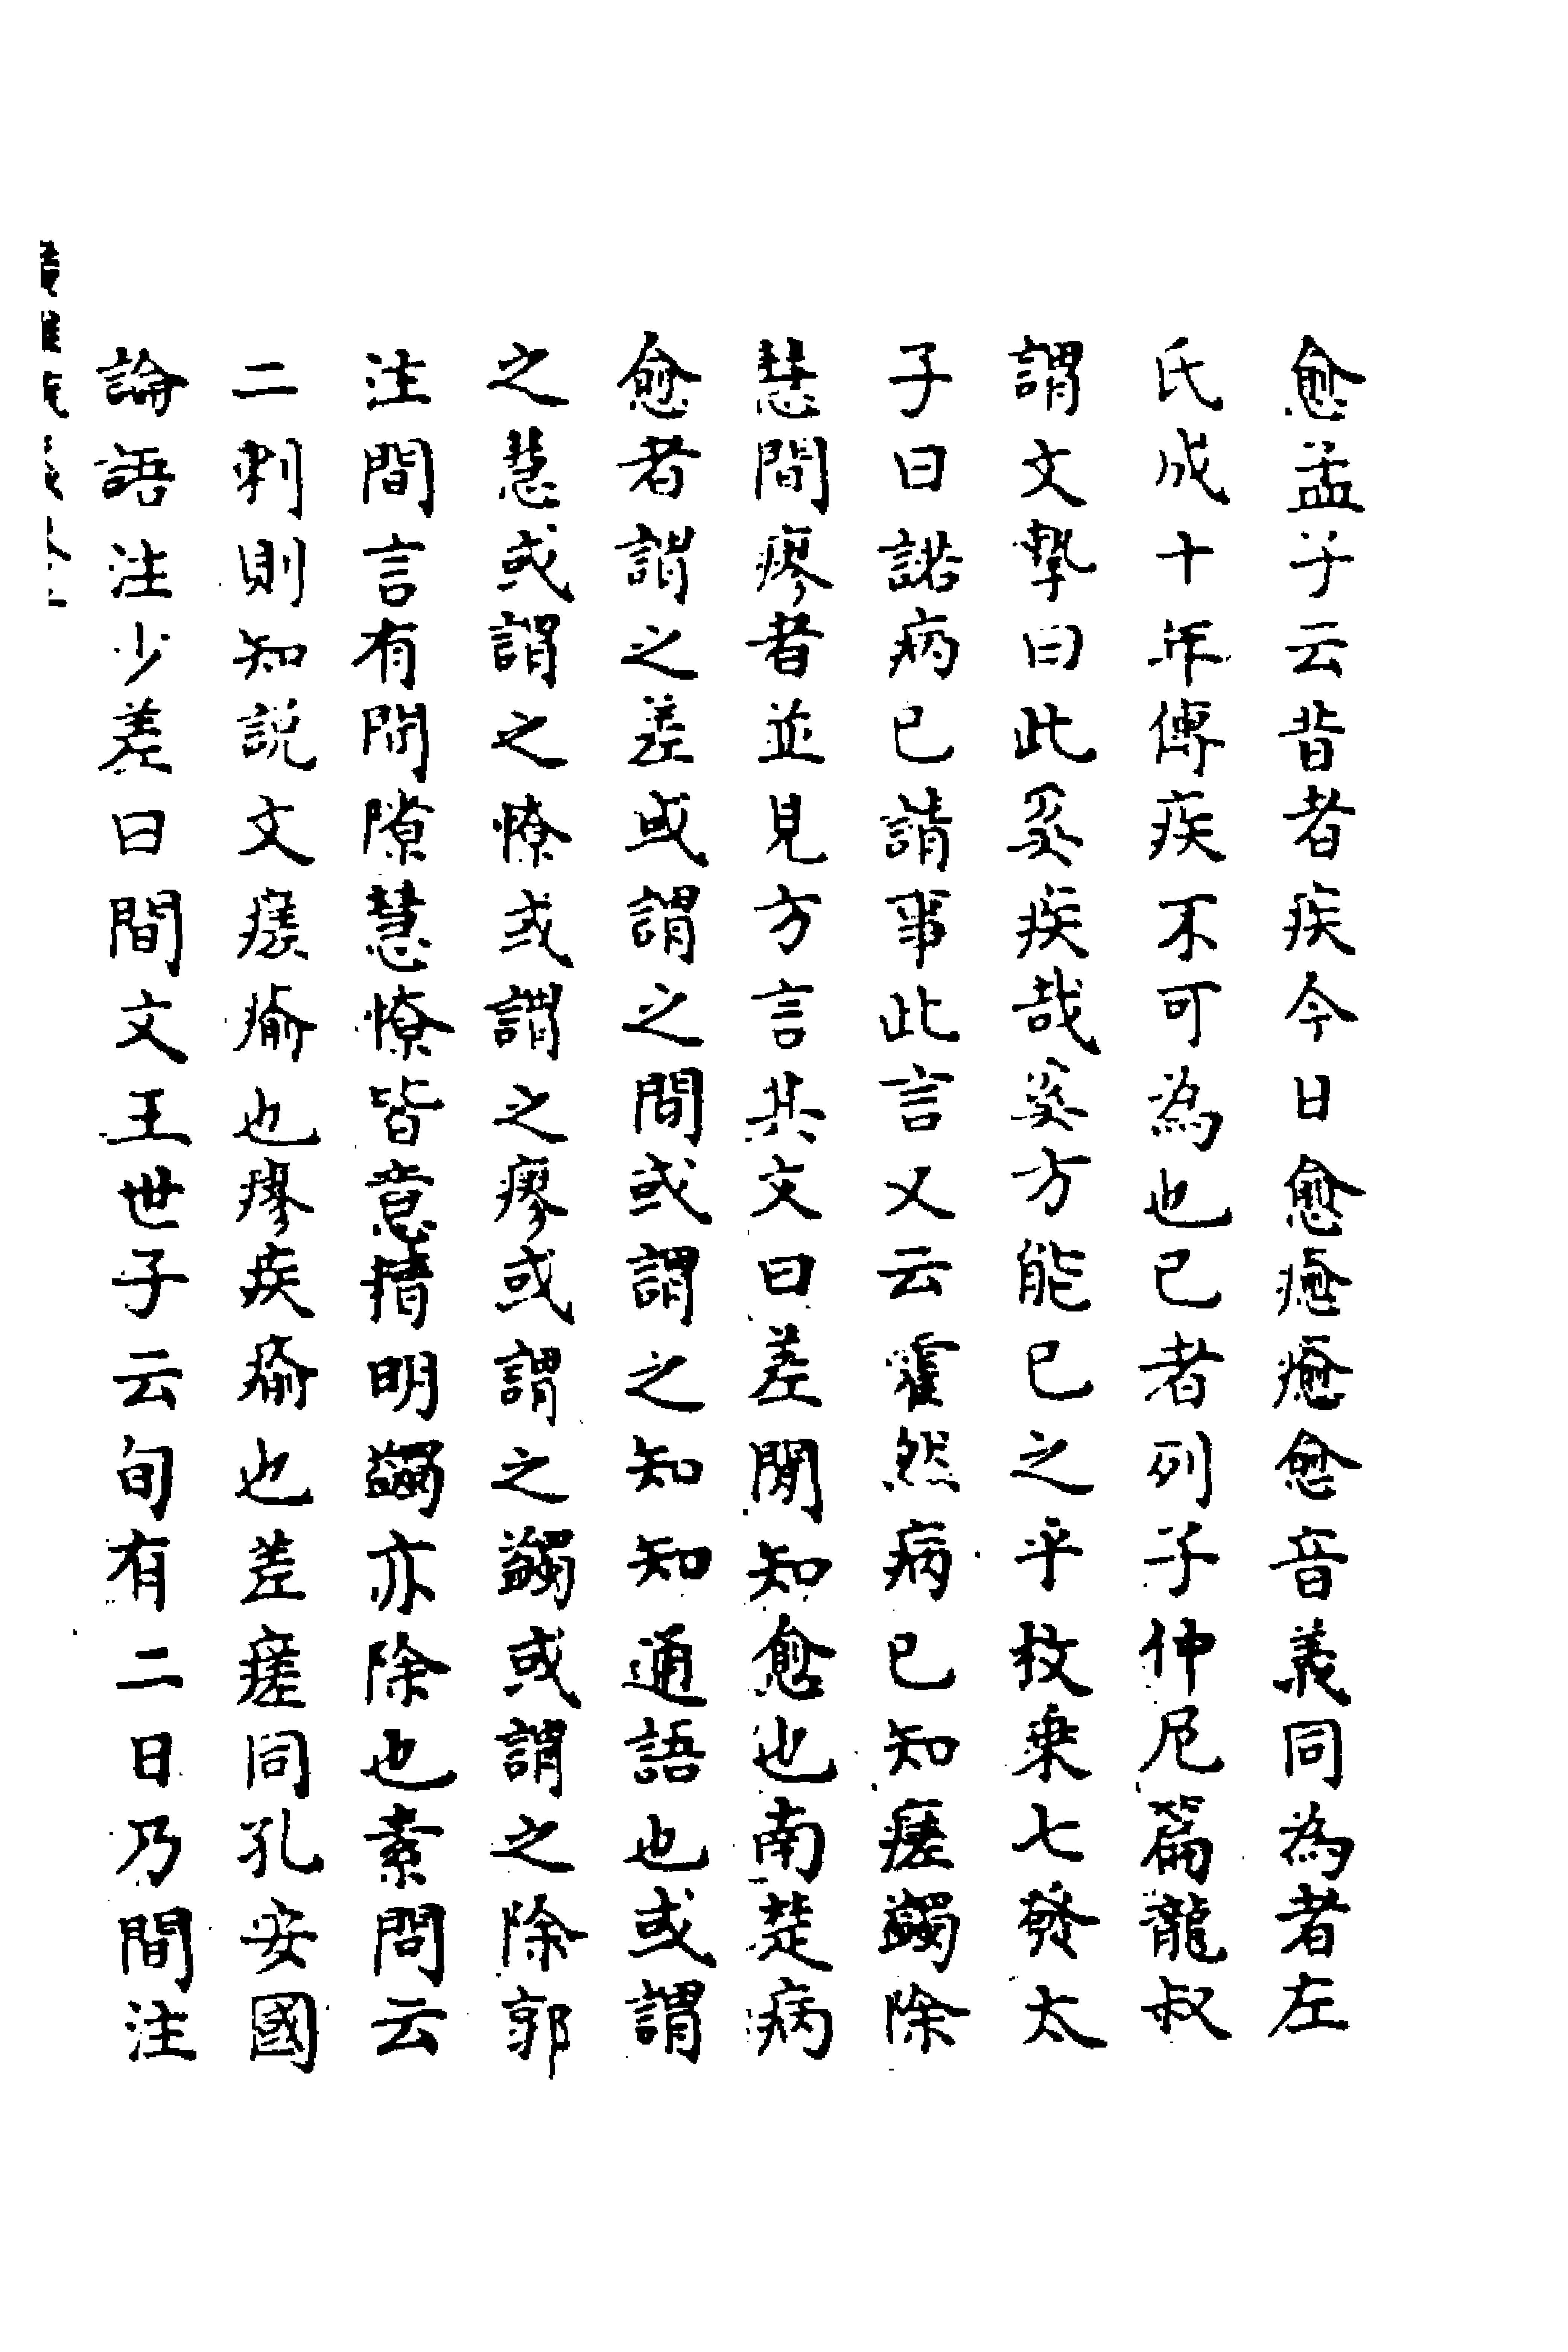 愈孟子云昔者疾今日愈癒癒愈音義同為者左
氏成十年傳疾不可為也已者列子仲尼篇龍叔
謂文摯曰此奚疾哉奚方能已之乎枚乗七發太
子曰諾病已請事此言又云霍然病已知瘥蠲除
慧間瘳者並見方言其文曰差閒知愈也南楚病
愈者謂之差或謂之間或謂之知知通語也或謂
之慧或謂之憭或謂之瘳或謂之蠲或謂之除郭
注間言有間隙慧憭皆意精明蠲亦除也素問云
二刺則知說文瘥瘉也瘳疾瘉也差瘥同孔安國
論語注少差曰間文王世子云旬有二日乃間注